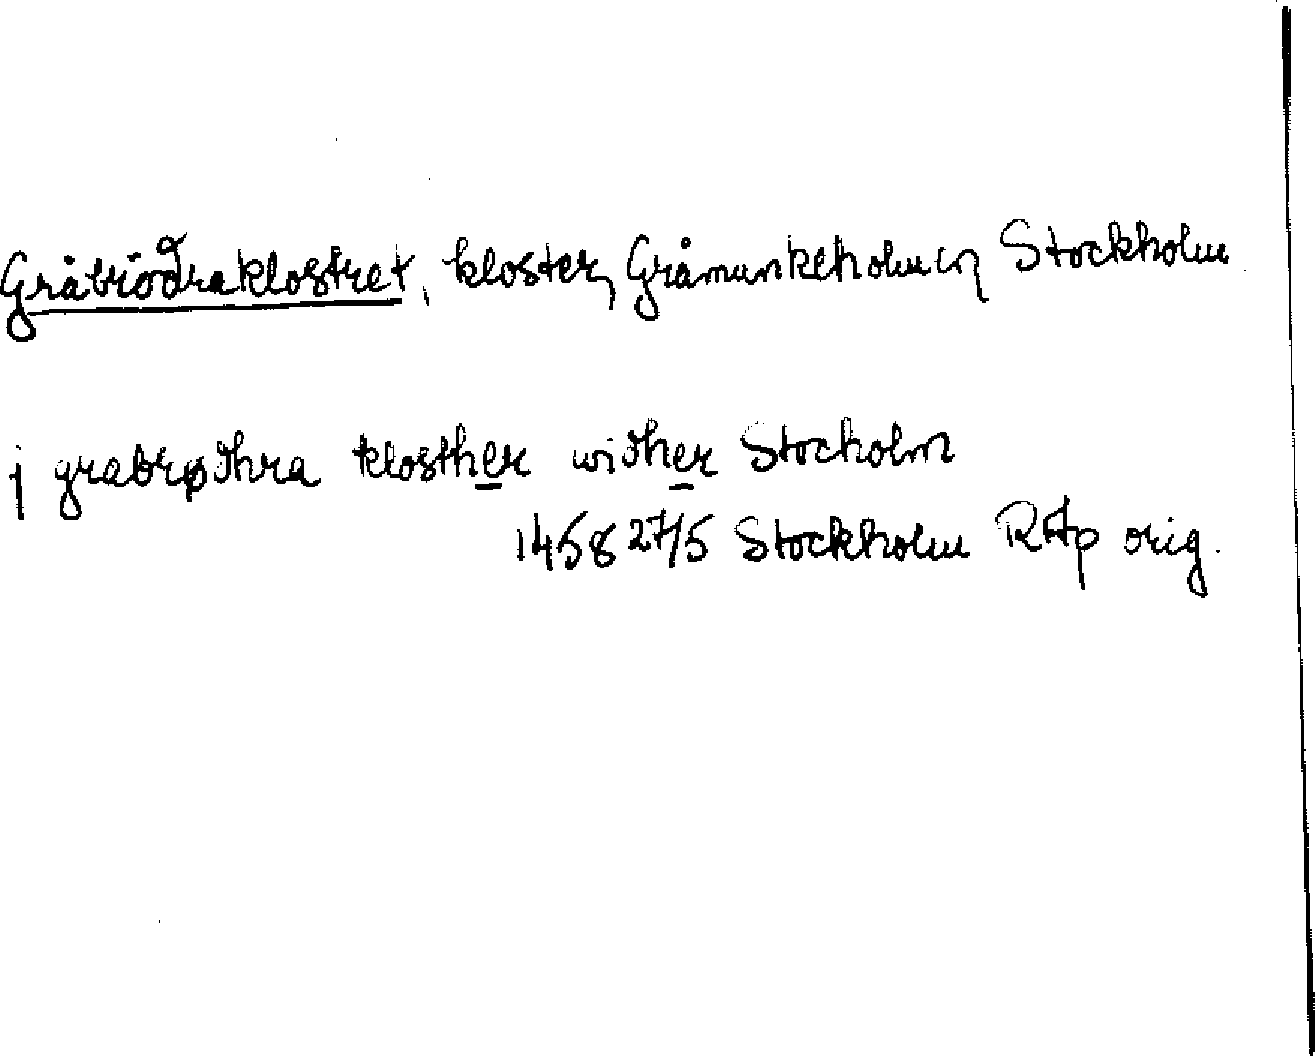 Gråbrödraklostret, kloster, Gråmunkeholmen, Stockholm
j grabrødhra klosther widher Stocholm
1458 27/5 Stockholm RAp orig.